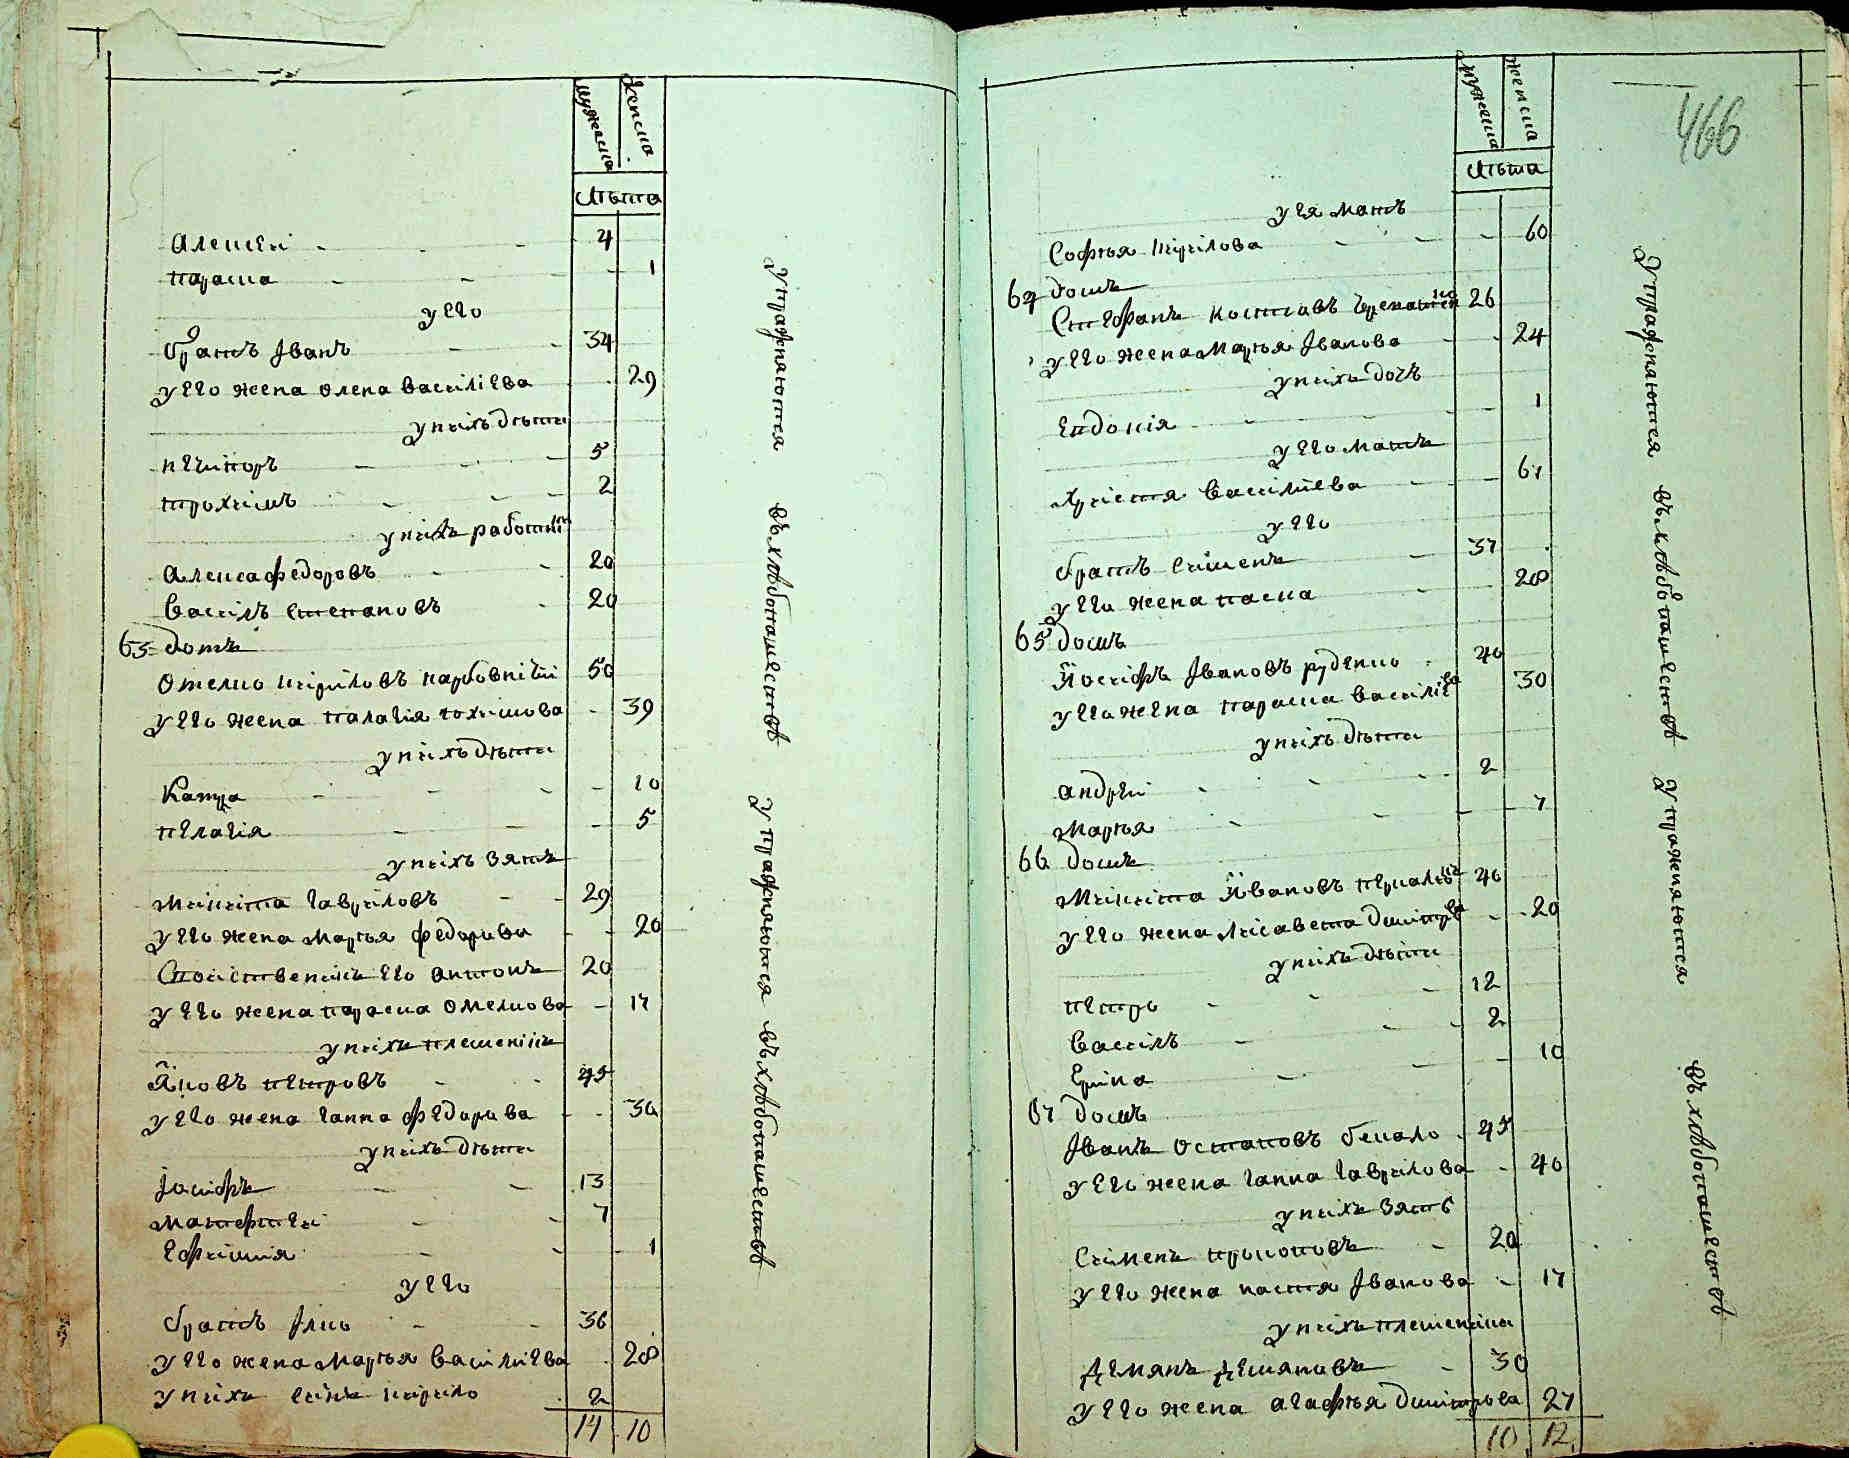 мужеска
женска
Лѣта
Алексѣй - - - 4
параска - - - 1
у его
братъ Іванъ - - 34
у его жена олена василіева - 29
у нихъ дѣти
нечипоръ - - - 5
трохимъ - - - 2
у нихъ работни
Алекса федоровъ - - 20
василъ степановъ - 20
63 домъ
Омелко кириловъ карбовничій 50
у его жена палагія юхимова - 39
у нихъ дѣти
Катря - - - 10
пелагія - - - 5
у нихъ зять
микита гавриловъ - - 29
у его жена марья федорова - - 20
Своиственикъ его антонъ 20
у его жена параска омелкова - 17
у нихъ племеникъ
Яковъ петровъ - - 45
у его жена ганна федорова - - 30
у нихъ дѣти
Іосифъ - - 13
матефтеи - - 7
Ефимия - - - 1
у его
братъ Ілко - - 36
у его жена марья василиева - 28
у нихъ синъ кирило - 2
14 10
Упражняются въ хлѣбопашествѣ
Упражняются въ хлѣбопашествѣ
466
мужеска
женска
Лѣта
у ея мать
Софья кирилова - - - - 60
64 домъ
Стефанъ костювъ 26
у его жена марья Іванова - - 24
у нихъ дочъ
Евдокія - - - - 1
у его мать
христя василиева - - 61
у его
братъ сименъ - 37
у его жена паска - - 28
65 домъ
Иосифъ Івановъ руденко - 40
у его жена параска василіева 30
у нихъ дѣти
андрей - - - - 2
марья - - - - 7
66 домъ
микита Ивановъ 40
у его жена лисавета дмитрова - - 20
у нихъ дѣти
петро - - - 12
василъ - - - 2
Ерина - - - 10
67 домъ
Іванъ остаповъ бекало - 45
у его жена ганна гаврилова - 40
у нихъ зять
Сименъ прокоповъ - 20
у его жена настя Іванова - 17
у нихъ племеники
демянъ демяновъ - 30
у его жена агафья дмитрова 27
10 12
Упражняются въ хлѣбопашествѣ
Упражняются въ хлѣбопашествѣ